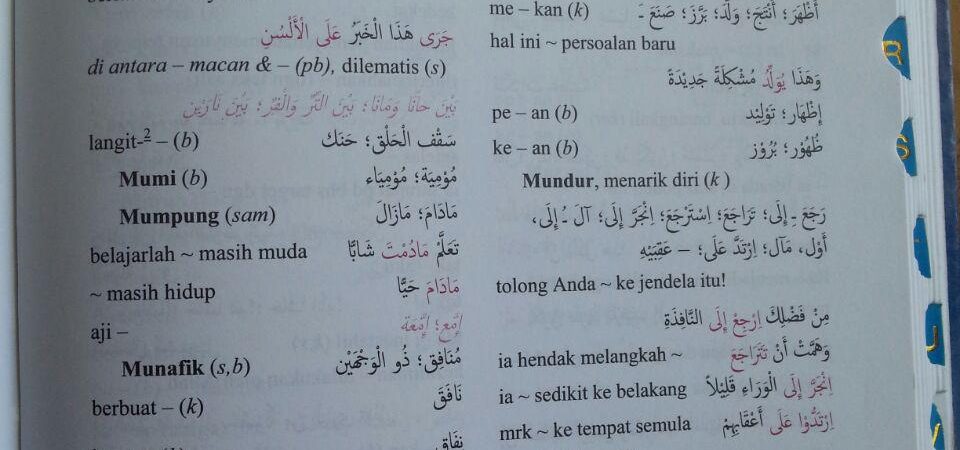 جَرَى هَذَا الْخَبَرُ عَلَى الْأَلْسُنِ
di antara – macan & – (pb), dilematis (s)
بَيْنَ حَانَا وَمَانَا؛ بَيْنَ الْقُرِّ وَالْقَرِّ؛ بَيْنَ نَارَيْنِ
langit-² – (b) سَقْف الْحَلْق؛ حَنَك
Mumi (b) مُوْمِيَة؛ مُوْمِيَاء
Mumpung (sam) مَادَامَ؛ مَازَالَ
belajarlah ~ masih muda تَعَلَّمْ مَادُمْتَ شَابًّا
~ masih hidup مَادَامَ حَيًّا
aji – إِمَّع؛ إِمَّعَة
Munafik (s,b) مُنَافِق؛ ذُو الْوَجْهَيْن
berbuat – (k) نَافَقَ
نِفَاق
me – kan (k) أَظْهَرَ؛ أَنْتَجَ؛ وَلَّدَ؛ بَرَّزَ؛ صَنَعَ ـَ
hal ini ~ persoalan baru
وَهَذَا يُوَلِّدُ مُشْكِلَةً جَدِيْدَةً
pe – an (b) إِظْهَار؛ تَوْلِيْد
ke – an (b) ظُهُوْر؛ بُرُوْز
Mundur, menarik diri (k )
رَجَعَ ـِ إِلَى؛ تَرَاجَعَ؛ اِسْتَرْجَعَ؛ اِنْجَرَّ إِلَى؛ آلَ ـُ إِلَى،
أَوْل، مَآل؛ اِرْتَدَّ عَلَى؛ – عَقِبَيْهِ
tolong Anda ~ ke jendela itu!
مِنْ فَضْلِكَ اِرْجِعْ إِلَى النَّافِذَةِ
ia hendak melangkah ~ وَهَمَّتْ أَنْ تَتَرَاجَعَ
ia ~ sedikit ke belakang اِنْجَرَّ إِلَى الْوَرَاءِ قَلِيْلاً
mrk ~ ke tempat semula اِرْتَدُّوا عَلَى أَعْقَابِهِمْ
R
S